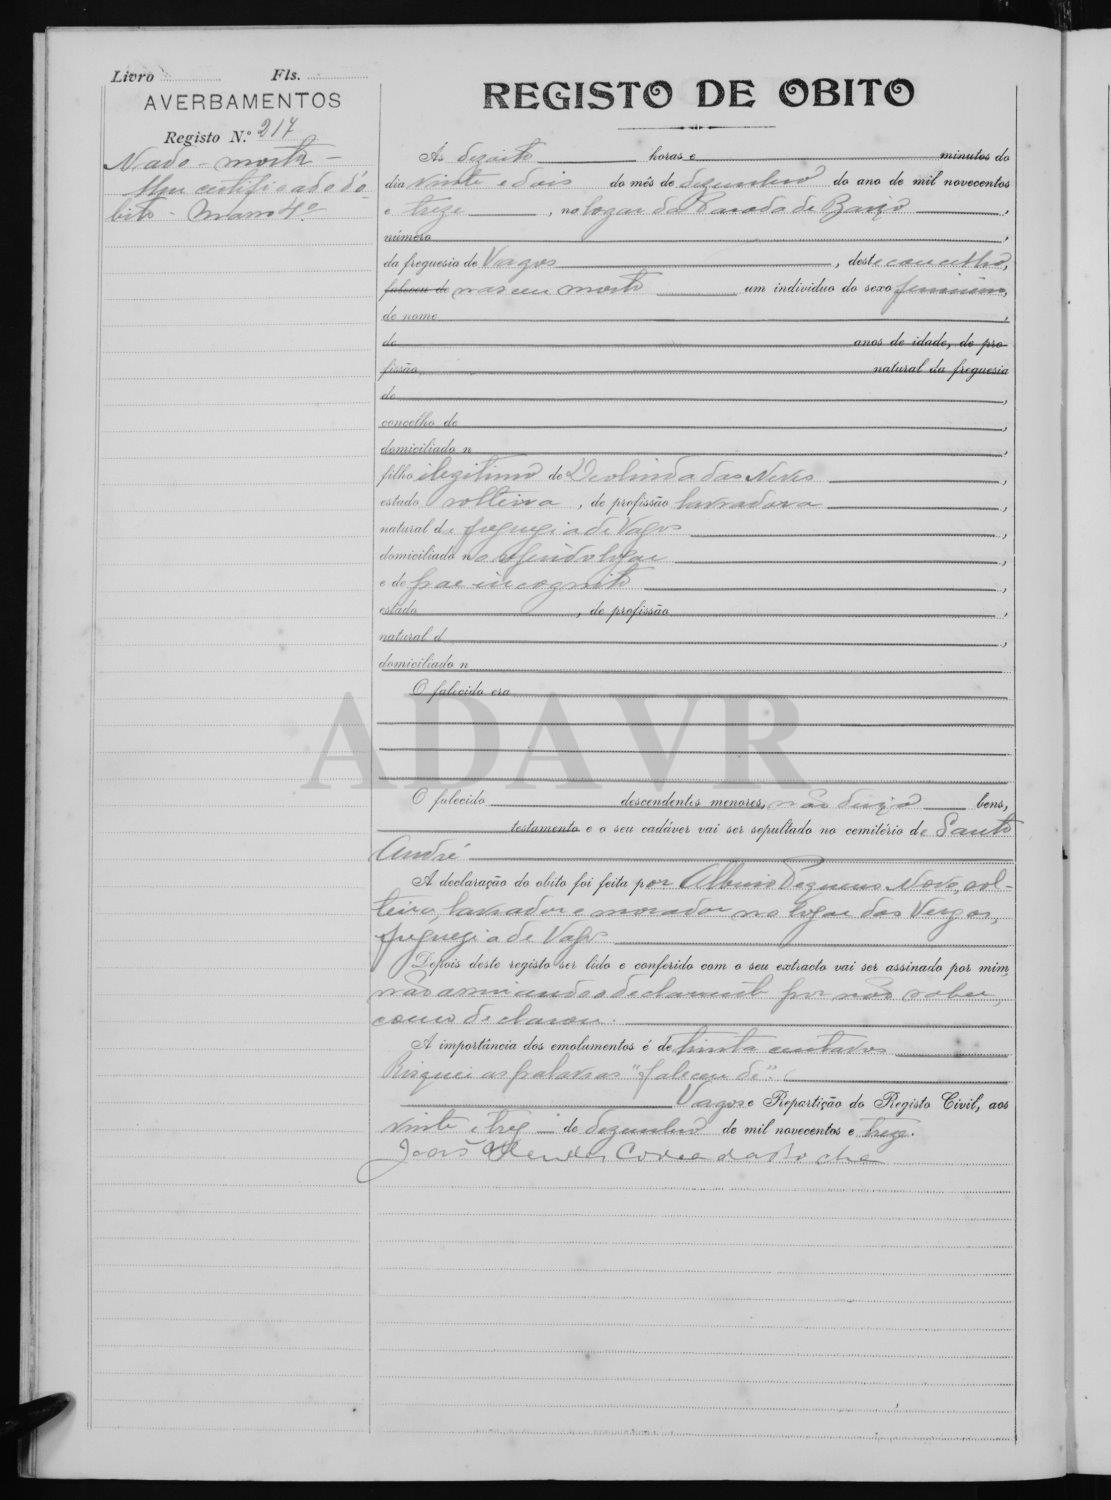 Livro Fls.
AVERBAMENTOS
Registo N.º 217
Nado-morto-
Um certificado d'o-
bito - Maço 4º
REGISTO DE OBITO
Ás dezoito horas e minutos do
dia vinte e dois do mês de dezembro do ano de mil novecentos
e treze, no logar da Parada de
número
da freguesia de Vagos, deste concelho,
faleceu de nasceu morto um individuo do sexo feminino,
de nome
de anos de idade, de pro-
fissão natural da freguesia
de
concelho de
domiciliado n
filho ilegitimo de Deolinda das Neves
estado solteira, de profissão lavradora
natural da freguezia de Vagos
domiciliado no referido logar
e de pae incognito
estado, de profissão
natural d
domiciliado n
O falecido era
ADAVR
O falecido descendentes menores, não deixa bens,
testamento e o seu cadáver vai ser sepultado no cemitério de Santo
André
A declaração do obito foi feita por Albino Pequeno Novo, sol-
teiro, lavrador e morador no logar das Vergas,
freguezia de Vagos
Depois deste registo ser lido e conferido com o seu extracto vai ser assinado por mim,
não assinando o declarante por não saber,
como declarou.
A importância dos emolumentos é de trinta centavos
Risquei as palavras "faleceu de".
Vagos e Repartição do Registo Civil, aos
vinte e trez de dezembro de mil novecentos e treze.
João Mendes Correa da Rocha